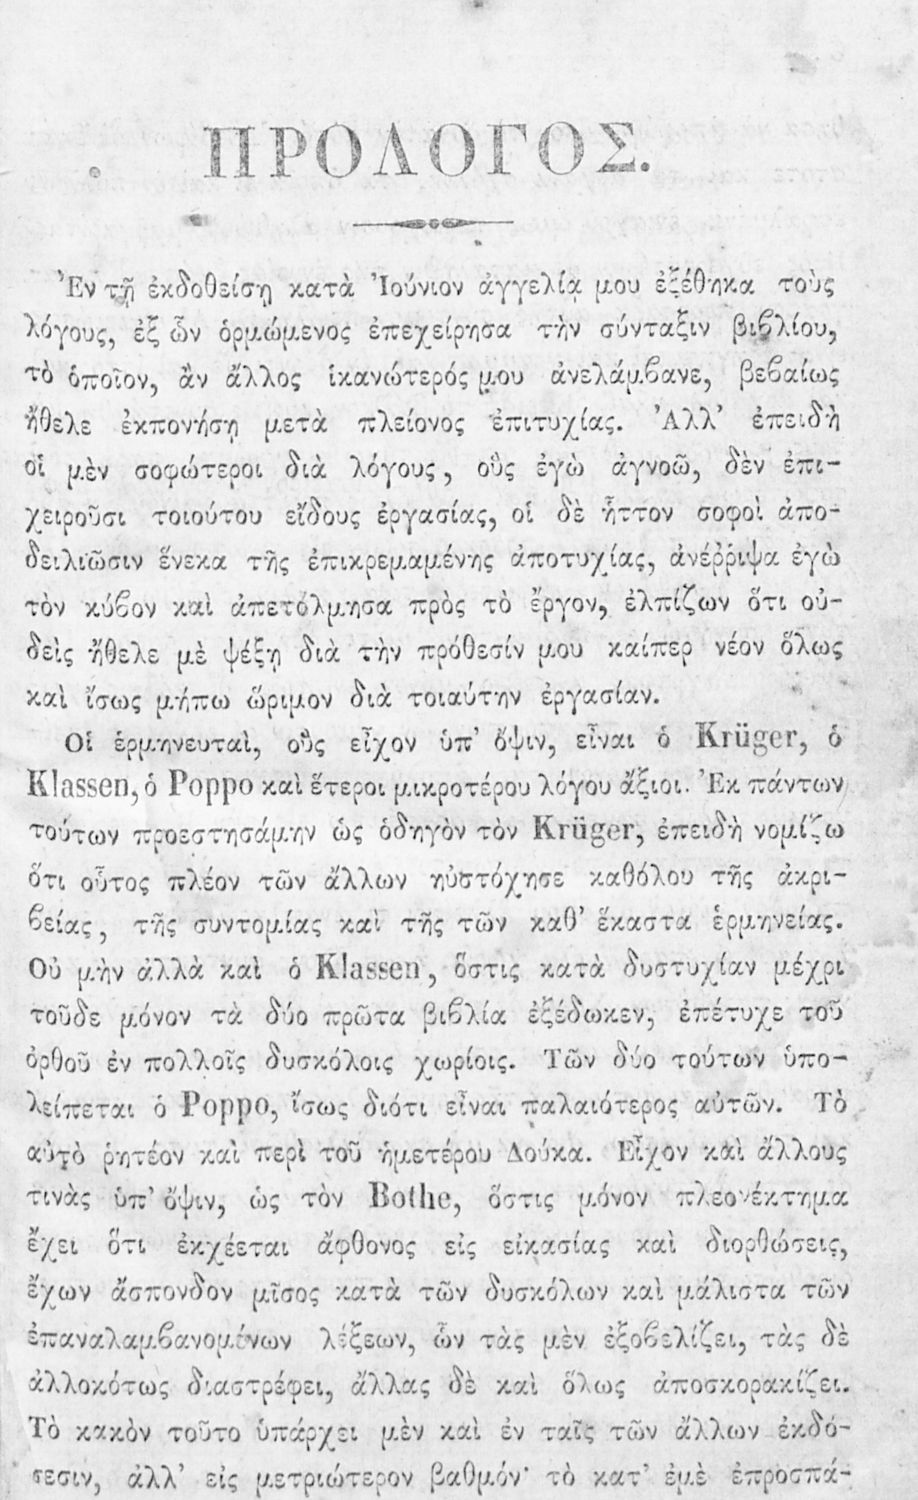 ΠΡΟΛΟΓΟΣ.
Ἐν τῇ ἐκδοθείσῃ κατὰ Ἰούνιον ἀγγελίᾳ μου ἐξέθηκα τοὺς
λόγους, ἐξ ὧν ὁρμώμενος ἐπεχείρησα τὴν σύνταξιν βιβλίου,
τὸ ὁποῖον, ἂν ἄλλος ἱκανώτερός μου ἀνελάμβανε, βεβαίως
ἤθελε ἐκπονήσῃ μετὰ πλείονος ἐπιτυχίας. Ἀλλ’ ἐπειδὴ
οἱ μὲν σοφώτεροι διὰ λόγους, οὓς ἐγὼ ἀγνοῶ, δὲν ἐπι-
χειροῦσι τοιούτου εἴδους ἐργασίας, οἱ δὲ ἧττον σοφοὶ ἀπο-
δειλιῶσιν ἕνεκα τῆς ἐπικρεμαμένης ἀποτυχίας, ἀνέῤῥιψα ἐγὼ
τὸν κύβον καὶ ἀπετόλμησα πρὸς τὸ ἔργον, ἐλπίζων ὅτι οὐ-
δεὶς ἤθελε μὲ ψέξῃ διὰ τὴν πρόθεσίν μου καίπερ νέον ὅλως
καὶ ἴσως μήπω ὥριμον διὰ τοιαύτην ἐργασίαν.
Οἱ ἑρμηνευταὶ, οὓς εἶχον ὑπ’ ὄψιν, εἶναι ὁ Krüger, ὁ
Klassen, ὁ Poppo καὶ ἕτεροι μικροτέρου λόγου ἄξιοι. Ἐκ πάντων
τούτων προεστησάμην ὡς ὁδηγὸν τὸν Krüger, ἐπειδὴ νομίζω
ὅτι οὗτος πλέον τῶν ἄλλων ηὐστόχησε καθόλου τῆς ἀκρι-
βείας, τῆς συντομίας καὶ τῆς τῶν καθ’ ἕκαστα ἑρμηνείας.
Οὐ μὴν ἀλλὰ καὶ ὁ Klassen, ὅστις κατὰ δυστυχίαν μέχρι
τοῦδε μόνον τὰ δύο πρῶτα βιβλία ἐξέδωκεν, ἐπέτυχε τοῦ
ὀρθοῦ ἐν πολλοῖς δυσκόλοις χωρίοις. Τῶν δύο τούτων ὑπο-
λείπεται ὁ Poppo, ἴσως διότι εἶναι παλαιότερος αὐτῶν. Τὸ
αὐτὸ ῥητέον καὶ περὶ τοῦ ἡμετέρου Δούκα. Εἶχον καὶ ἄλλους
τινὰς ὑπ’ ὄψιν, ὡς τὸν Bothe, ὅστις μόνον πλεονέκτημα
ἔχει ὅτι ἐκχέεται ἄφθονος εἰς εἰκασίας καὶ διορθώσεις,
ἔχων ἄσπονδον μῖσος κατὰ τῶν δυσκόλων καὶ μάλιστα τῶν
ἐπαναλαμβανομένων λέξεων, ὧν τὰς μὲν ἐξοβελίζει, τὰς δὲ
ἀλλοκότως διαστρέφει, ἄλλας δὲ καὶ ὅλως ἀποσκορακίζει.
Τὸ κακὸν τοῦτο ὑπάρχει μὲν καὶ ἐν ταῖς τῶν ἄλλων ἐκδό-
σεσιν, ἀλλ’ εἰς μετριώτερον βαθμόν· τὸ κατ’ ἐμὲ ἐπροσπά-